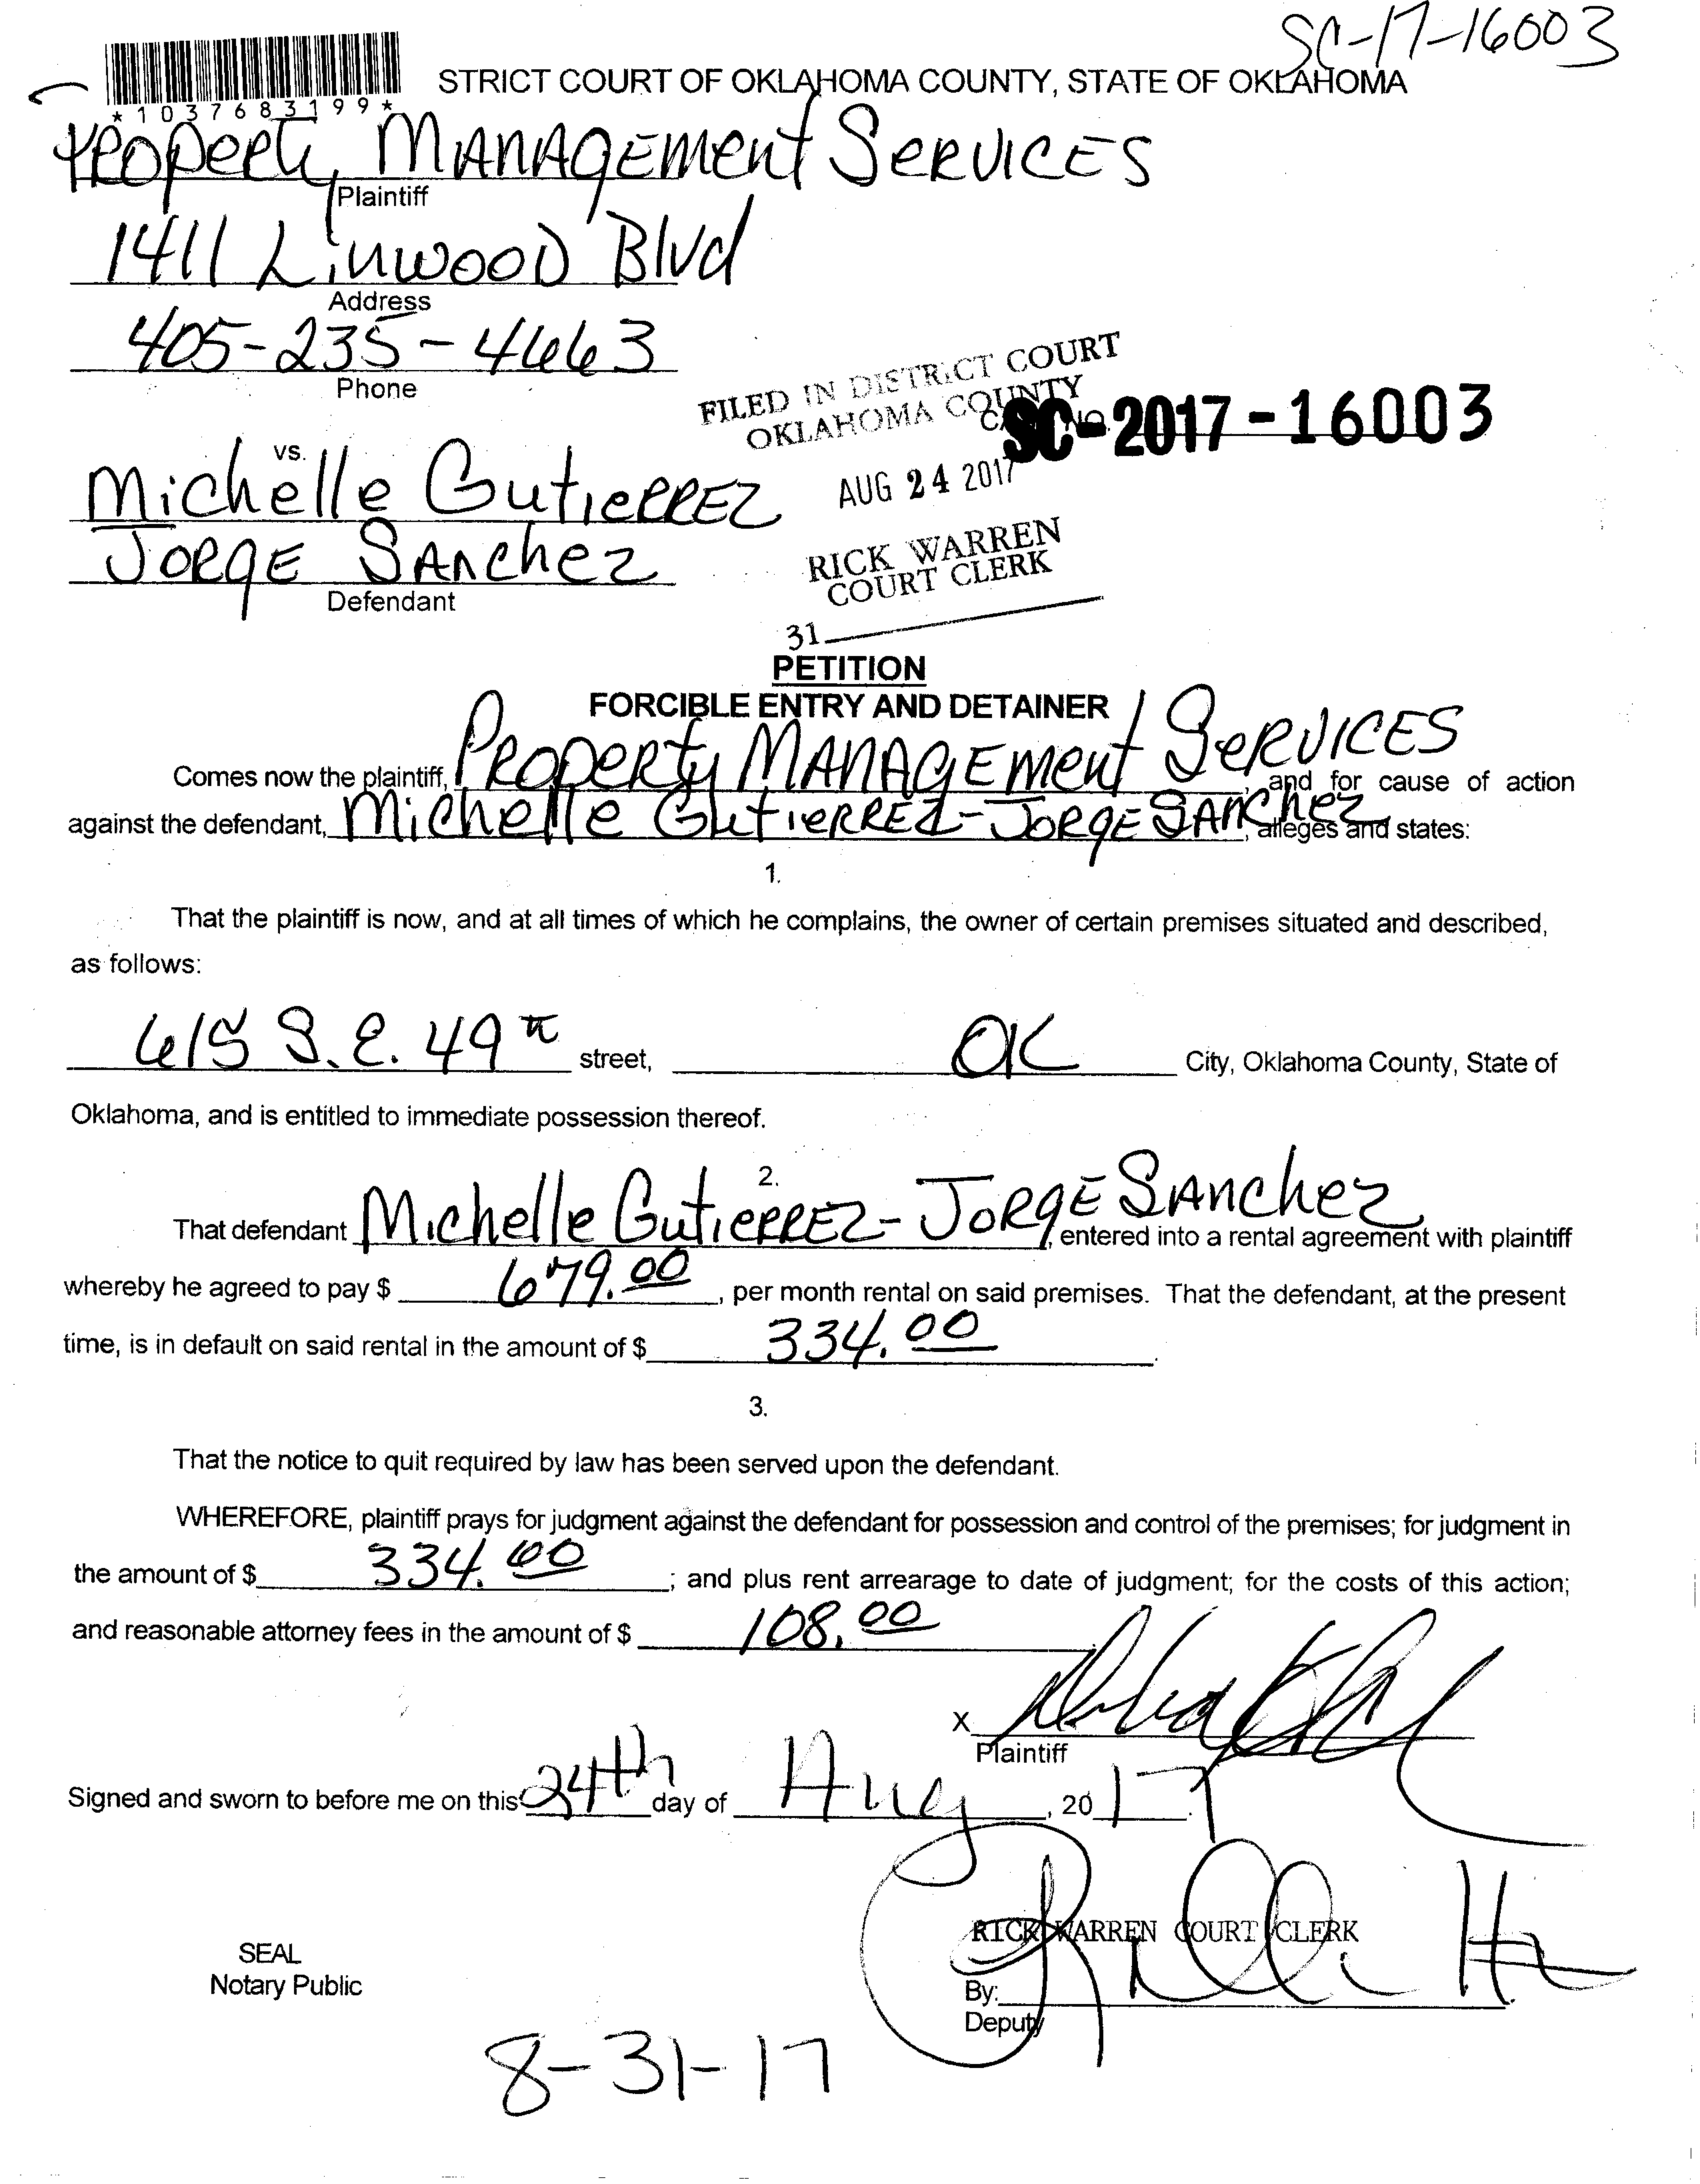 SC-17-16003
STRICT COURT OF OKLAHOMA COUNTY, STATE OF OKLAHOMA
*1037683199*
PROPERTY MANAGEMENT SERVICES
Plaintiff
1411 LINWOOD Blvd
Address
405-235-4663
Phone
FILED IN DISTRICT COURT
OKLAHOMA COUNTY
SC-2017-16003
vs.
Michelle GutieRREZ
AUG 24 2017
JORGE SANchez
RICK WARREN
COURT CLERK
Defendant
31
PETITION
FORCIBLE ENTRY AND DETAINER
Comes now the plaintiff, PROPERTY MANAGEMENT SERVICES, and for cause of action
against the defendant, Michelle GutieRREZ-JORGE SANchez, alleges and states:
1.
That the plaintiff is now, and at all times of which he complains, the owner of certain premises situated and described,
as follows:
615 S.E. 49th street, OK City, Oklahoma County, State of
Oklahoma, and is entitled to immediate possession thereof.
2.
That defendant Michelle GutieRREZ-JORGE SANchez, entered into a rental agreement with plaintiff
whereby he agreed to pay $ 679.00, per month rental on said premises. That the defendant, at the present
time, is in default on said rental in the amount of $ 334.00.
3.
That the notice to quit required by law has been served upon the defendant.
WHEREFORE, plaintiff prays for judgment against the defendant for possession and control of the premises; for judgment in
the amount of $ 334.00; and plus rent arrearage to date of judgment; for the costs of this action;
and reasonable attorney fees in the amount of $ 108.00
X
Plaintiff
Signed and sworn to before me on this 24th day of Aug, 2017.
RICK WARREN COURT CLERK
SEAL
Notary Public
By:
Deputy
8-31-17